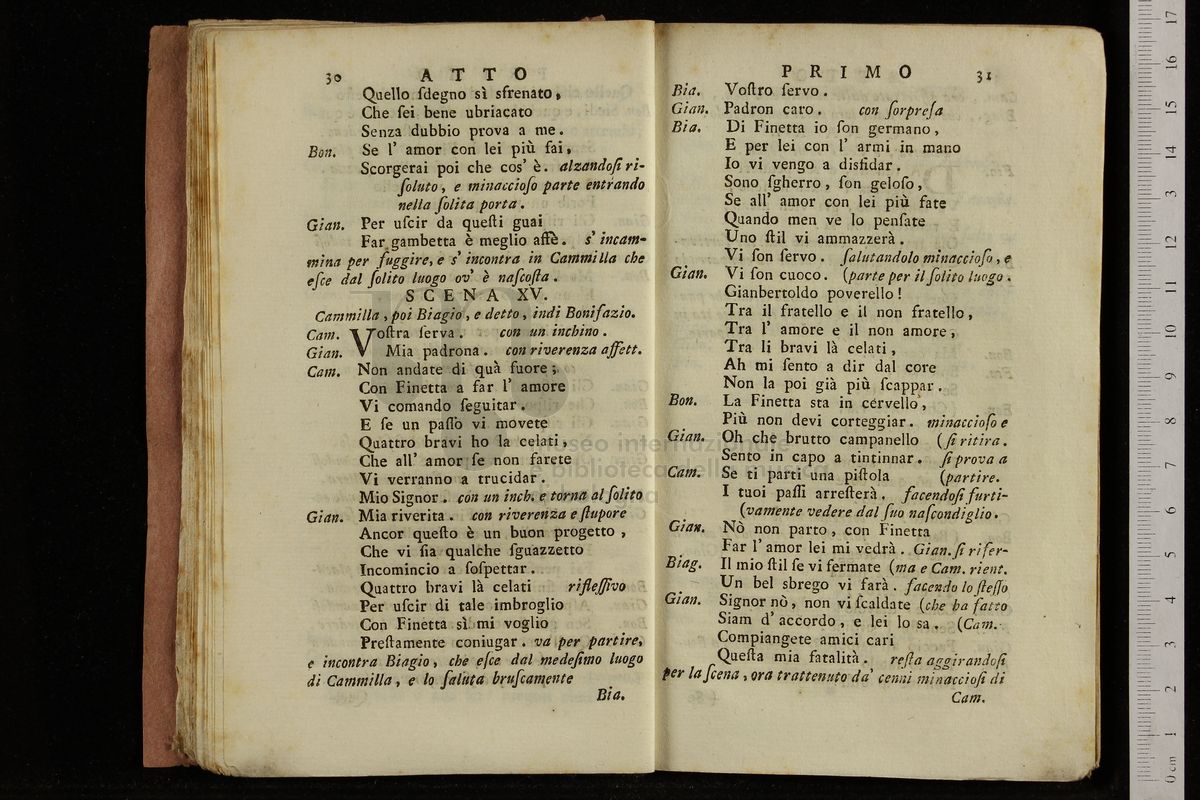 30 ATTO
Quello ſdegno sì sfrenato,
Che ſei bene ubriacato
Senza dubbio prova a me.
Bon. Se l' amor con lei più fai,
Scorgerai poi che cos' è. alzandoſi ri-
ſoluto, e minaccioſo parte entrando
nella ſolita porta.
Gian. Per uſcir da queſti guai
Far gambetta è meglio affè. s' incam-
mina per fuggire, e s' incontra in Cammilla che
eſce dal ſolito luogo ov' è naſcoſta.
SCENA XV.
Cammilla, poi Biagio, e detto, indi Bonifazio.
Cam. Voſtra ſerva. con un inchino.
Gian. Mia padrona. con riverenza affett.
Cam. Non andate di quà fuore;
Con Finetta a far l' amore
Vi comando ſeguitar.
E ſe un paſſo vi movete
Quattro bravi ho la celati,
Che all' amor ſe non farete
Vi verranno a trucidar.
Mio Signor. con un inch. e torna al ſolito
Gian. Mia riverita. con riverenza e ſtupore
Ancor queſto è un buon progetto,
Che vi ſia qualche ſguazzetto
Incomincio a ſoſpettar.
Quattro bravi là celati rifleſſivo
Per uſcir di tale imbroglio
Con Finetta sì mi voglio
Preſtamente coniugar. va per partire,
e incontra Biagio, che eſce dal medeſimo luogo
di Cammilla, e lo ſaluta bruſcamente
Bia.
PRIMO 31
Bia. Voſtro ſervo.
Gian. Padron caro. con ſorpreſa
Bia. Di Finetta io ſon germano,
E per lei con l' armi in mano
Io vi vengo a disfidar.
Sono ſgherro, ſon geloſo,
Se all' amor con lei più fate
Quando men ve lo penſate
Uno ſtil vi ammazzerà.
Vi ſon ſervo. ſalutandolo minaccioſo, e
Gian. Vi ſon cuoco. (parte per il ſolito luogo.
Gianbertoldo poverello!
Tra il fratello e il non fratello,
Tra l' amore e il non amore,
Tra li bravi là celati,
Ah mi ſento a dir dal core
Non la poi già più ſcappar.
Bon. La Finetta sta in cervello,
Più non devi corteggiar. minaccioſo e
Gian. Oh che brutto campanello (ſi ritira.
Sento in capo a tintinnar. ſi prova a
Cam. Se ti parti una piſtola (partire.
I tuoi paſſi arreſterà. facendoſi furti-
(vamente vedere dal ſuo naſcondiglio.
Gian. Nò non parto, con Finetta
Far l' amor lei mi vedrà. Gian. ſi rifer-
Biag. Il mio ſtil ſe vi fermate (ma e Cam. rient.
Un bel sbrego vi farà. facendo lo ſteſſo
Gian. Signor nò, non vi ſcaldate (che ha fatto
Siam d' accordo, e lei lo sa. (Cam.
Compiangete amici cari
Queſta mia fatalità. reſta aggirandoſi
per la ſcena, ora trattenuto da' cenni minaccioſi di
Cam.